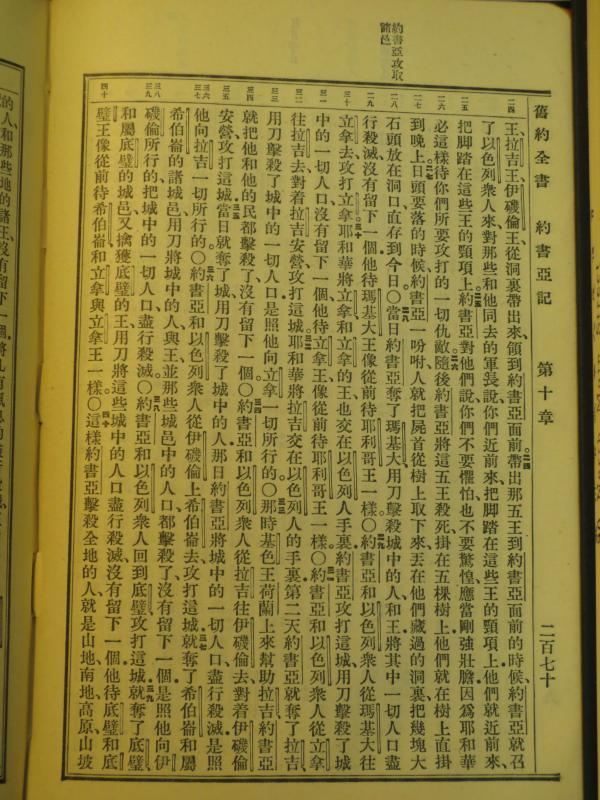 舊約全書 約書亞記 第十章 二百七十
約書亞攻取
諸邑
王、拉吉王、伊磯倫王、從洞裏帶出來、領到約書亞面前。二四帶出那五王到約書亞面前的時候、約書亞就召
了以色列衆人來、對那些和他同去的軍長說、你們近前來、把脚踏在這些王的頸項上、他們就近前來、
把脚踏在這些王的頸項上。二五約書亞對他們說、你們不要懼怕、也不要驚惶、應當剛強壯膽、因爲耶和華
必這樣待你們所要攻打的一切仇敵。二六隨後約書亞將這五王殺死、掛在五棵樹上、他們就在樹上直掛
到晚上。二七日頭要落的時候、約書亞一吩咐、人就把屍首從樹上取下來、丟在他們藏過的洞裏、把幾塊大
石頭放在洞口、直存到今日。〇二八當日約書亞奪了瑪基大、用刀擊殺城中的人、和王、將其中一切人口盡
行殺滅、沒有留下一個、他待瑪基大王、像從前待耶利哥王一樣。〇二九約書亞和以色列衆人從瑪基大往
立拿去、攻打立拿。三十耶和華將立拿和立拿的王、也交在以色列人手裏、約書亞攻打這城、用刀擊殺了城
中的一切人口、沒有留下一個、他待立拿王、像從前待耶利哥王一樣。〇三一約書亞和以色列衆人從立拿
往拉吉去、對着拉吉安營、攻打這城。三二耶和華將拉吉交在以色列人的手裏、第二天約書亞就奪了拉吉、
用刀擊殺了城中的一切人口、是照他向立拿一切所行的。〇三三那時基色王荷蘭上來幫助拉吉、約書亞
就把他和他的民都擊殺了、沒有留下一個。〇三四約書亞和以色列衆人從拉吉往伊磯倫去、對着伊磯倫
安營、攻打這城。三五當日就奪了城、用刀擊殺了城中的人、那日約書亞將城中的一切人口盡行殺滅、是照
他向拉吉一切所行的。〇三六約書亞和以色列衆人從伊磯倫上希伯崙去、攻打這城。三七就奪了希伯崙、和屬
希伯崙的諸城邑、用刀將城中的人與王、並那些城邑中的人口、都擊殺了、沒有留下一個、是照他向伊
磯倫所行的、把城中的一切人口盡行殺滅。〇三八約書亞和以色列衆人回到底璧、攻打這城。三九就奪了底璧、
和屬底璧的城邑、又擒獲底璧的王、用刀將這些城中的人口盡行殺滅、沒有留下一個、他待底璧和底
璧王、像從前待希伯崙和立拿與立拿王一樣。〇四十這樣約書亞擊殺全地的人、就是山地、南地、高原、山坡
的人、和那些地的諸王、沒有留下一個、